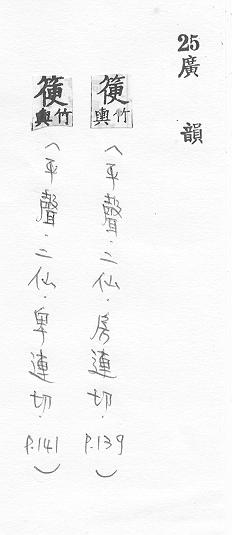 25廣韻
箯 竹輿(平聲.二仙.房連切.P.139)
箯 竹輿(平聲.二仙.卑連切.P.141)